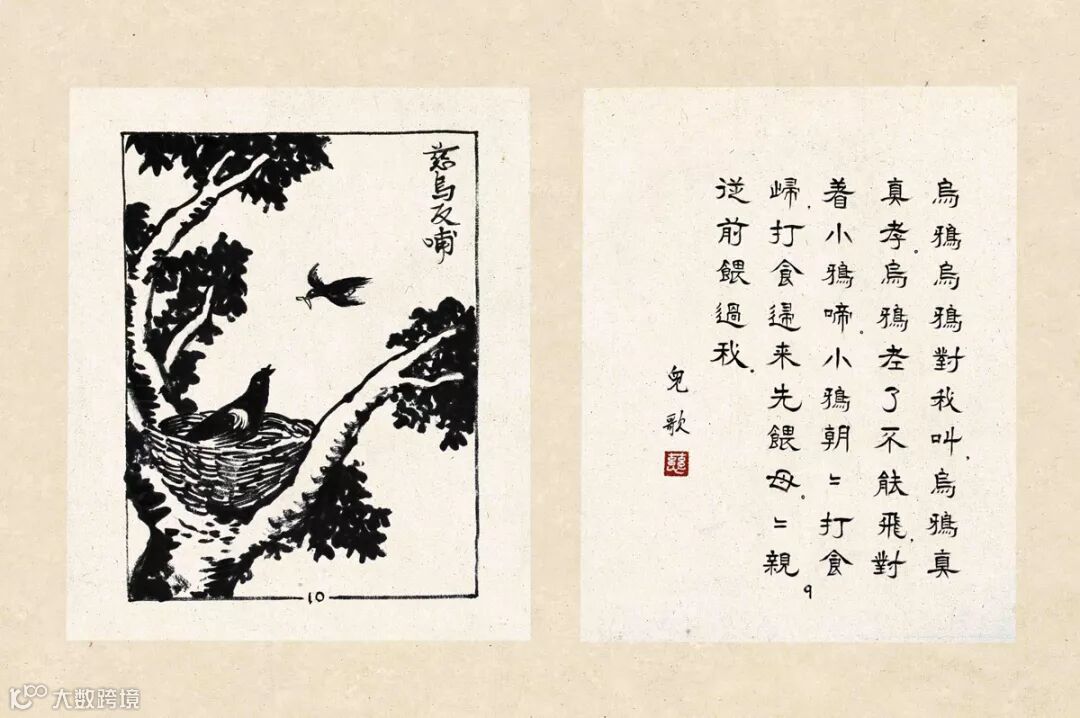 慈烏反哺
10
烏鴉烏鴉對我叫,烏鴉真
真孝。烏鴉老了不能飛,對
着小鴉啼。小鴉朝〻打食
歸,打食歸来先餵母。〻親
從前餵過我.
兒歌
9
大数跨境